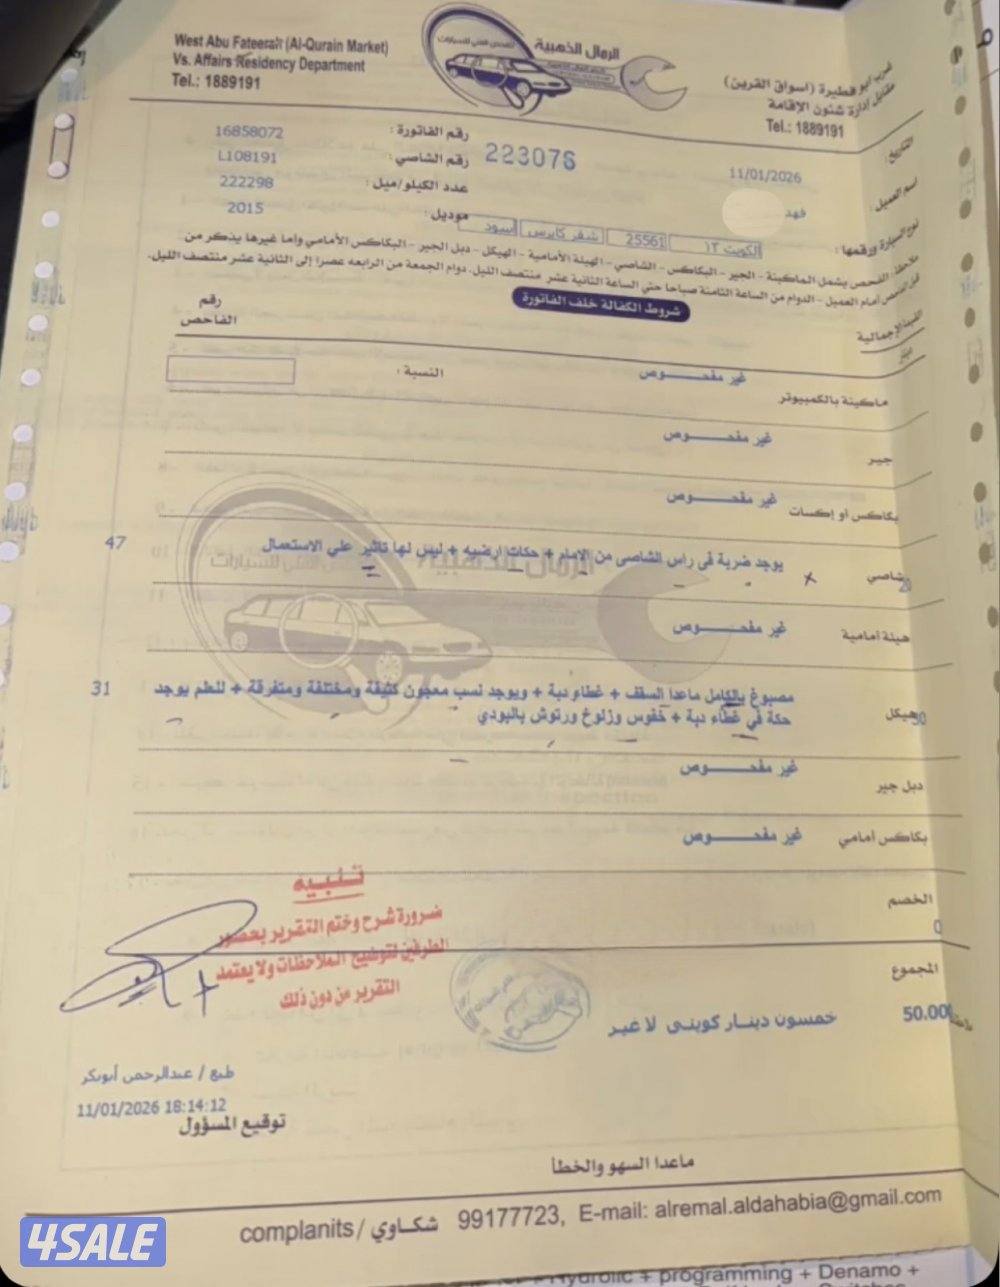 West Abu Fateerah (Al-Qurain Market)
Vs. Affairs Residency Department
Tel.: 1889191
الرمال الذهبية
للفحص الفني للسيارات
غرب ابو فطيرة (اسواق القرين)
مقابل إدارة شئون الإقامة
Tel.: 1889191
رقم الفاتورة : 16858072
رقم الشاصي : L108191
223076
عدد الكيلو/ميل : 222298
موديل : 2015
التاريخ : 11/01/2026
اسم العميل : فهد
نوع السيارة ورقمها : الكويت ١٣ 25561 شفر كابرس أسود
ملاحظة: الفحص يشمل الماكينة - الجير - البكاكس - الشاصي - الهيئة الأمامية - الهيكل - دبل الجير - البكاكس الأمامي وأما غيرها يذكر من
قبل الفحص أمام العميل - الدوام من الساعة الثامنة صباحا حتى الساعة الثانية عشر منتصف الليل. دوام الجمعة من الرابعه عصرا إلى الثانية عشر منتصف الليل.
شروط الكفالة خلف الفاتورة
القيمة الإجمالية
دينار
رقم
الفاحص
ماكينة بالكمبيوتر غير مفحـــــوص النسبة :
جير غير مفحـــــوص
بكاكس أو إكسات غير مفحـــــوص
20 شاصي يوجد ضربة في راس الشاصي من الامام + حكات ارضيه + ليس لها تاثير على الاستعمال 47
هيئة أمامية غير مفحـــــوص
30 هيكل مصبوغ بالكامل ماعدا السقف + غطاء دبة + ويوجد نسب معجون كثيفة ومختلفة ومتفرقة + للعلم يوجد 31
حكة في غطاء دبة + خفوس وزلوخ ورتوش بالبودي
دبل جير غير مفحـــــوص
بكاكس أمامي غير مفحـــــوص
الخصم
0
المجموع
50.000 خمسون دينار كويتى لا غير
تنبيه
ضرورة شرح وختم التقرير بحضور
الطرفين لتوضيح الملاحظات ولا يعتمد
التقرير من دون ذلك
طبع / عبدالرحمن أبوبكر
11/01/2026 18:14:12
توقيع المسؤول
ماعدا السهو والخطأ
complanits / شكاوي 99177723, E-mail: alremal.aldahabia@gmail.com
programming + Denamo +
4SALE